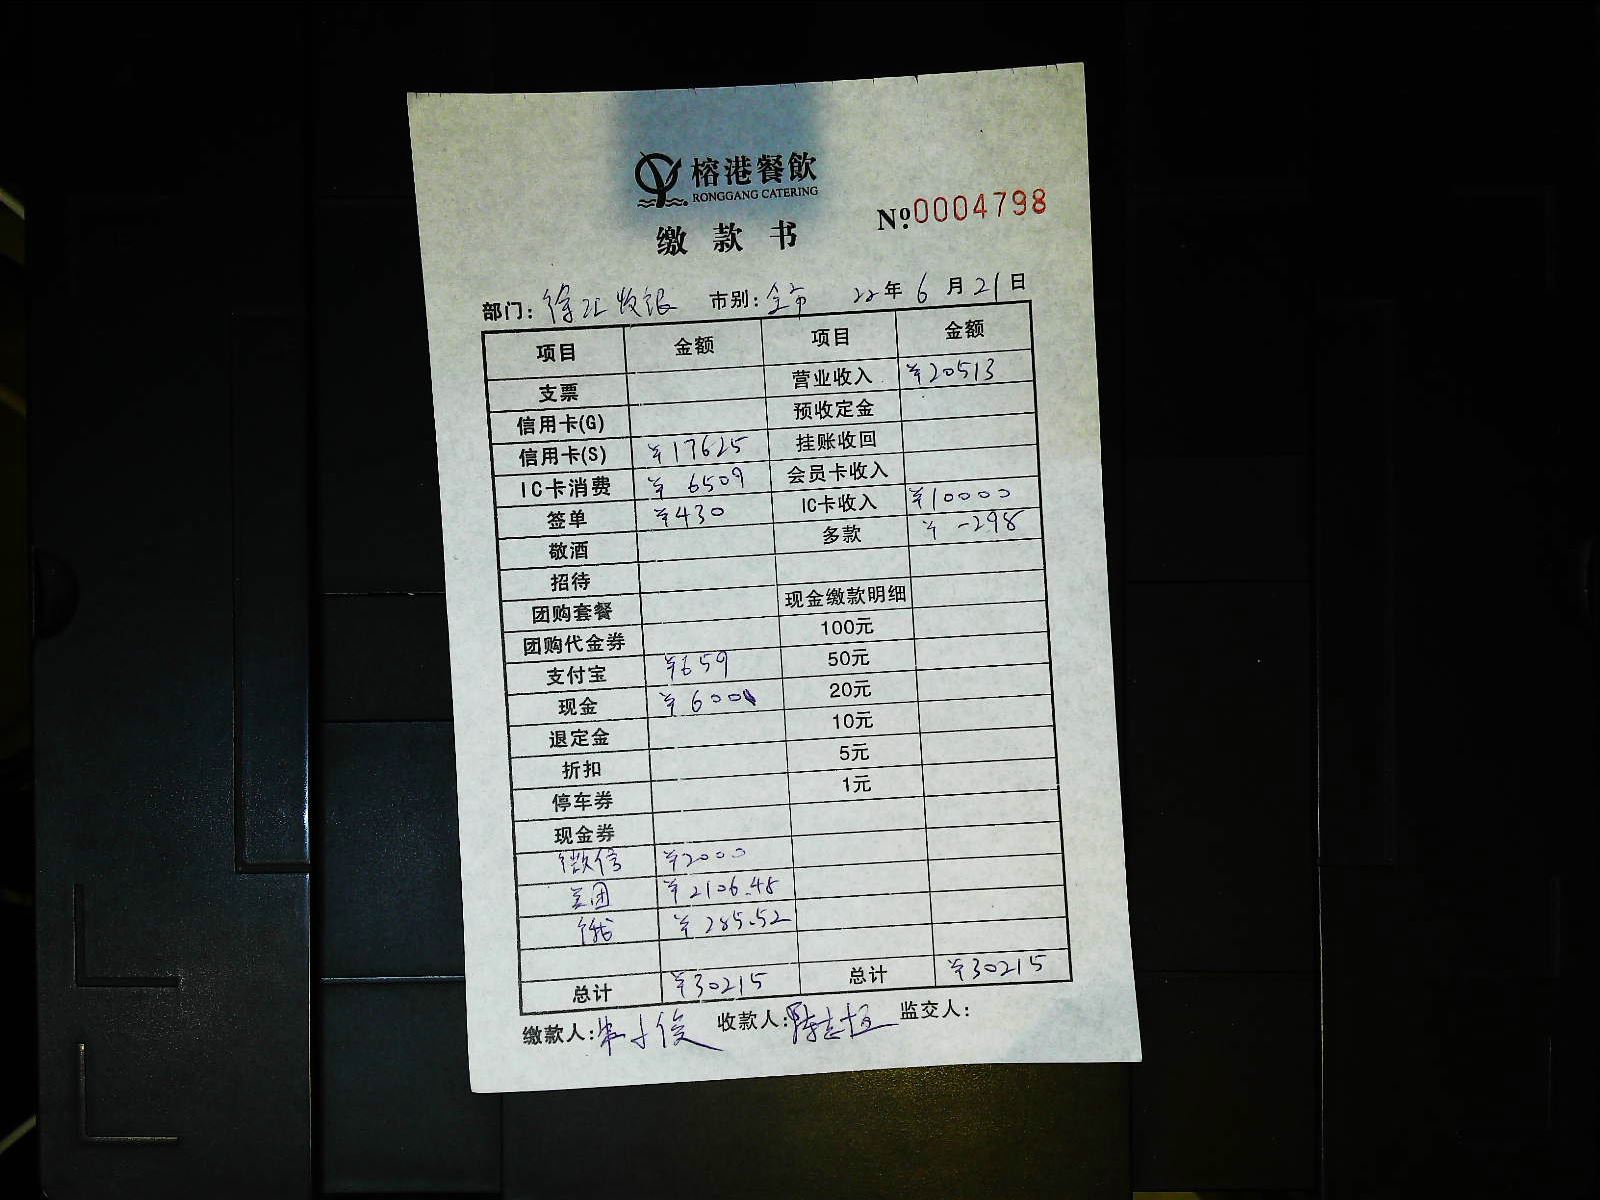 榕港餐飲
RONGGANG CATERING
缴款书
Nº:0004798
部门: 徐汇收银 市别: 全市 22年6月21日
项目 金额 项目 金额
支票 营业收入 ¥20513
信用卡(G) 预收定金
信用卡(S) ¥17625 挂账收回
IC卡消费 ¥6509 会员卡收入
签单 ¥430 IC卡收入 ¥10000
敬酒 多款 ¥-298
招待
团购套餐 现金缴款明细
团购代金券 100元
支付宝 ¥659 50元
现金 ¥600 20元
退定金 10元
折扣 5元
停车券 1元
现金券
微信 ¥2000
美团 ¥2106.48
饿 ¥285.52
总计 ¥30215 总计 ¥30215
缴款人: 收款人: 监交人: